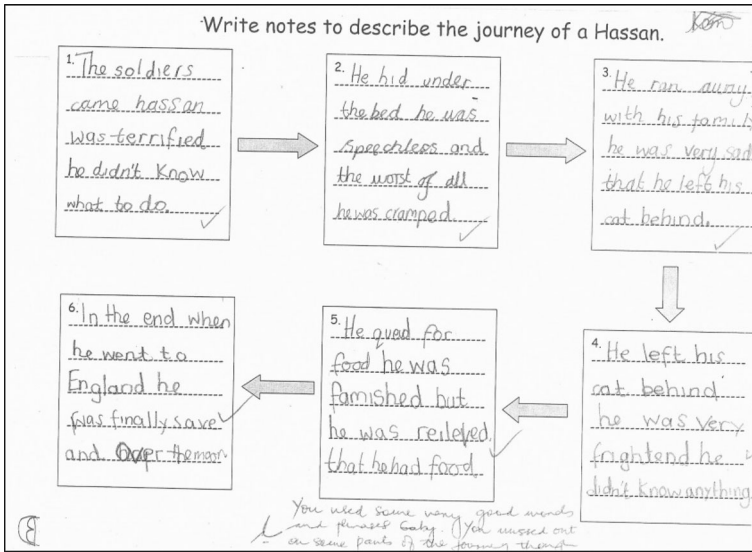 Write notes to describe the journey of a Hassan.
1. The soldiers
came hassan
was terrified
he didn't know
what to do.
2. He hid under
the bed he was
speechless and
the worst of all
he was cramped.
3. He ran away
with his famil
he was very sad
that he left his
cat behind.
4. He left his
cat behind
he was very
frightend he
didn't know anything
5. He qued for
food he was
famished but
he was reileved
that he had food.
6. In the end when
he went to
England he
was finally save
and Over the moon.
You used some very good words
and phrases Gaby. You missed out
on some parts of the journey though